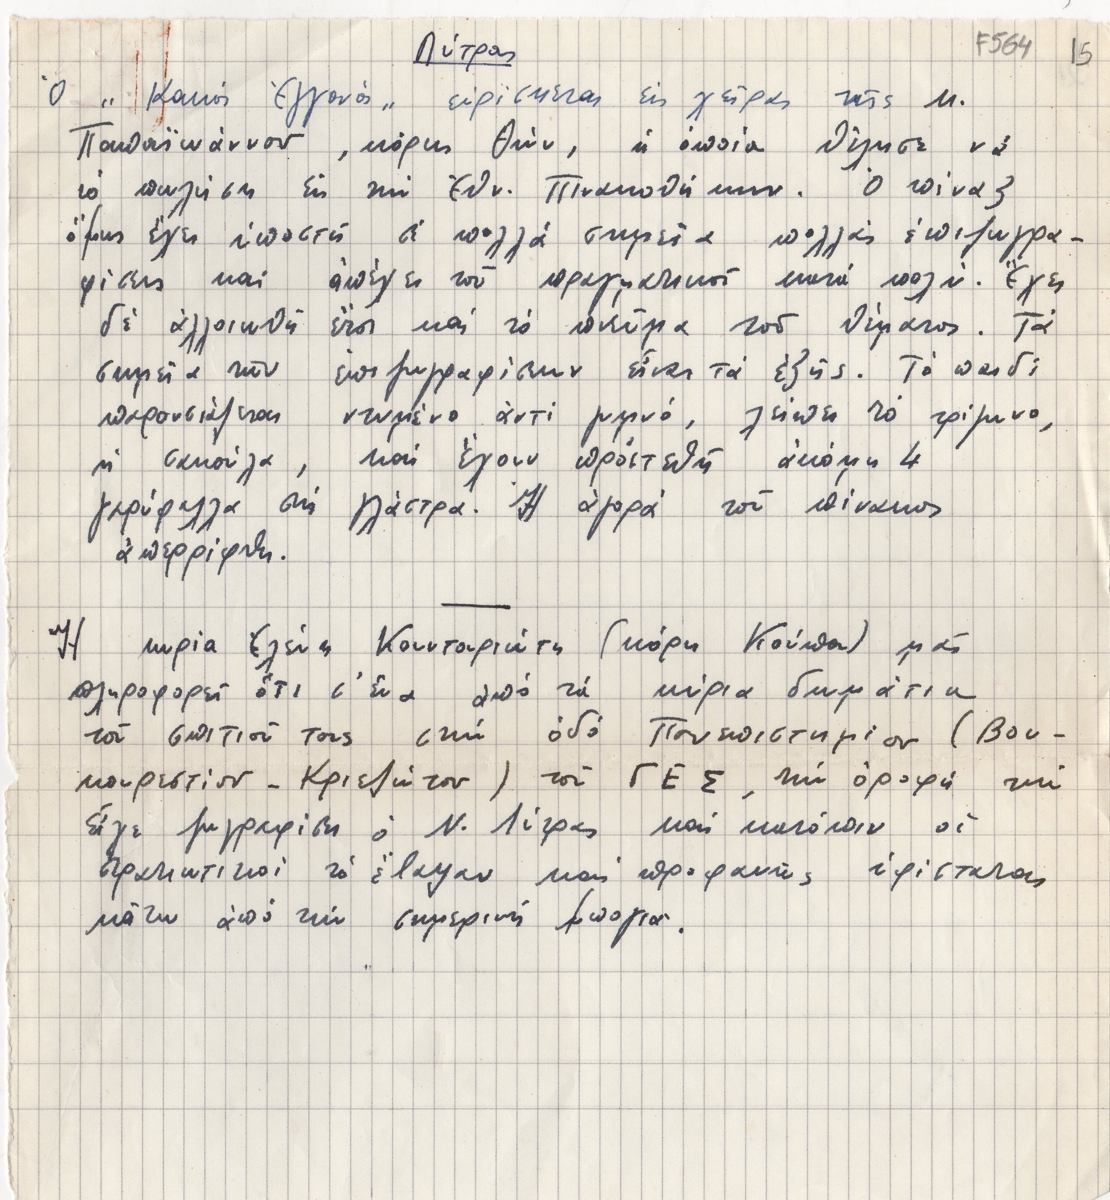 Λύτρας
F564 15
Ὁ „Κακός Ἐγγονός„ εὑρίσκεται εἰς χεῖρας τῆς κ.
Παπαϊωάννου, κόρης Θών, ἡ ὁποία θέλησε νά
τό πωλήση εἰς τήν Ἐθν. Πινακοθήκην. Ὁ πίναξ
ὅμως ἔχει ὑποστῆ σέ πολλά σημεῖα πολλάς ἐπιζωγρα-
φίσεις καί ἀπέχει τοῦ πραγματικοῦ κατά πολύ. Ἔχει
δέ ἀλλοιωθῆ ἔτσι καί τό πνεῦμα τοῦ θέματος. Τά
σημεῖα τῶν ἐπιζωγραφίσεων εἶναι τά ἑξῆς. Τό παιδί
παρουσιάζεται ντυμένο ἀντί γυμνό, λείπει τό
ἡ σακούλα, καί ἔχουν προστεθῆ ἀκόμη 4
γαρύφαλλα στή γλάστρα. Ἡ ἀγορά τοῦ πίνακος
ἀπερρίφθη.
Ἡ κυρία Ἑλένη Κουντουριώτη (κόρη Κούπα) μᾶς
πληροφορεῖ ὅτι σ' ἕνα ἀπό τά κύρια δωμάτια
τοῦ σπιτιοῦ τους στήν ὁδό Πανεπιστημίου (Βου-
κουρεστίου - Κριεζώτου) τοῦ ΓΕΣ, τήν ὀροφή τήν
εἶχε ζωγραφίσει ὁ Ν. Λύτρας καί κατόπιν οἱ
στρατιωτικοί τό ἔβαψαν καί προφανῶς ὑφίσταται
κάτω ἀπό τήν σημερινή μπογιά.